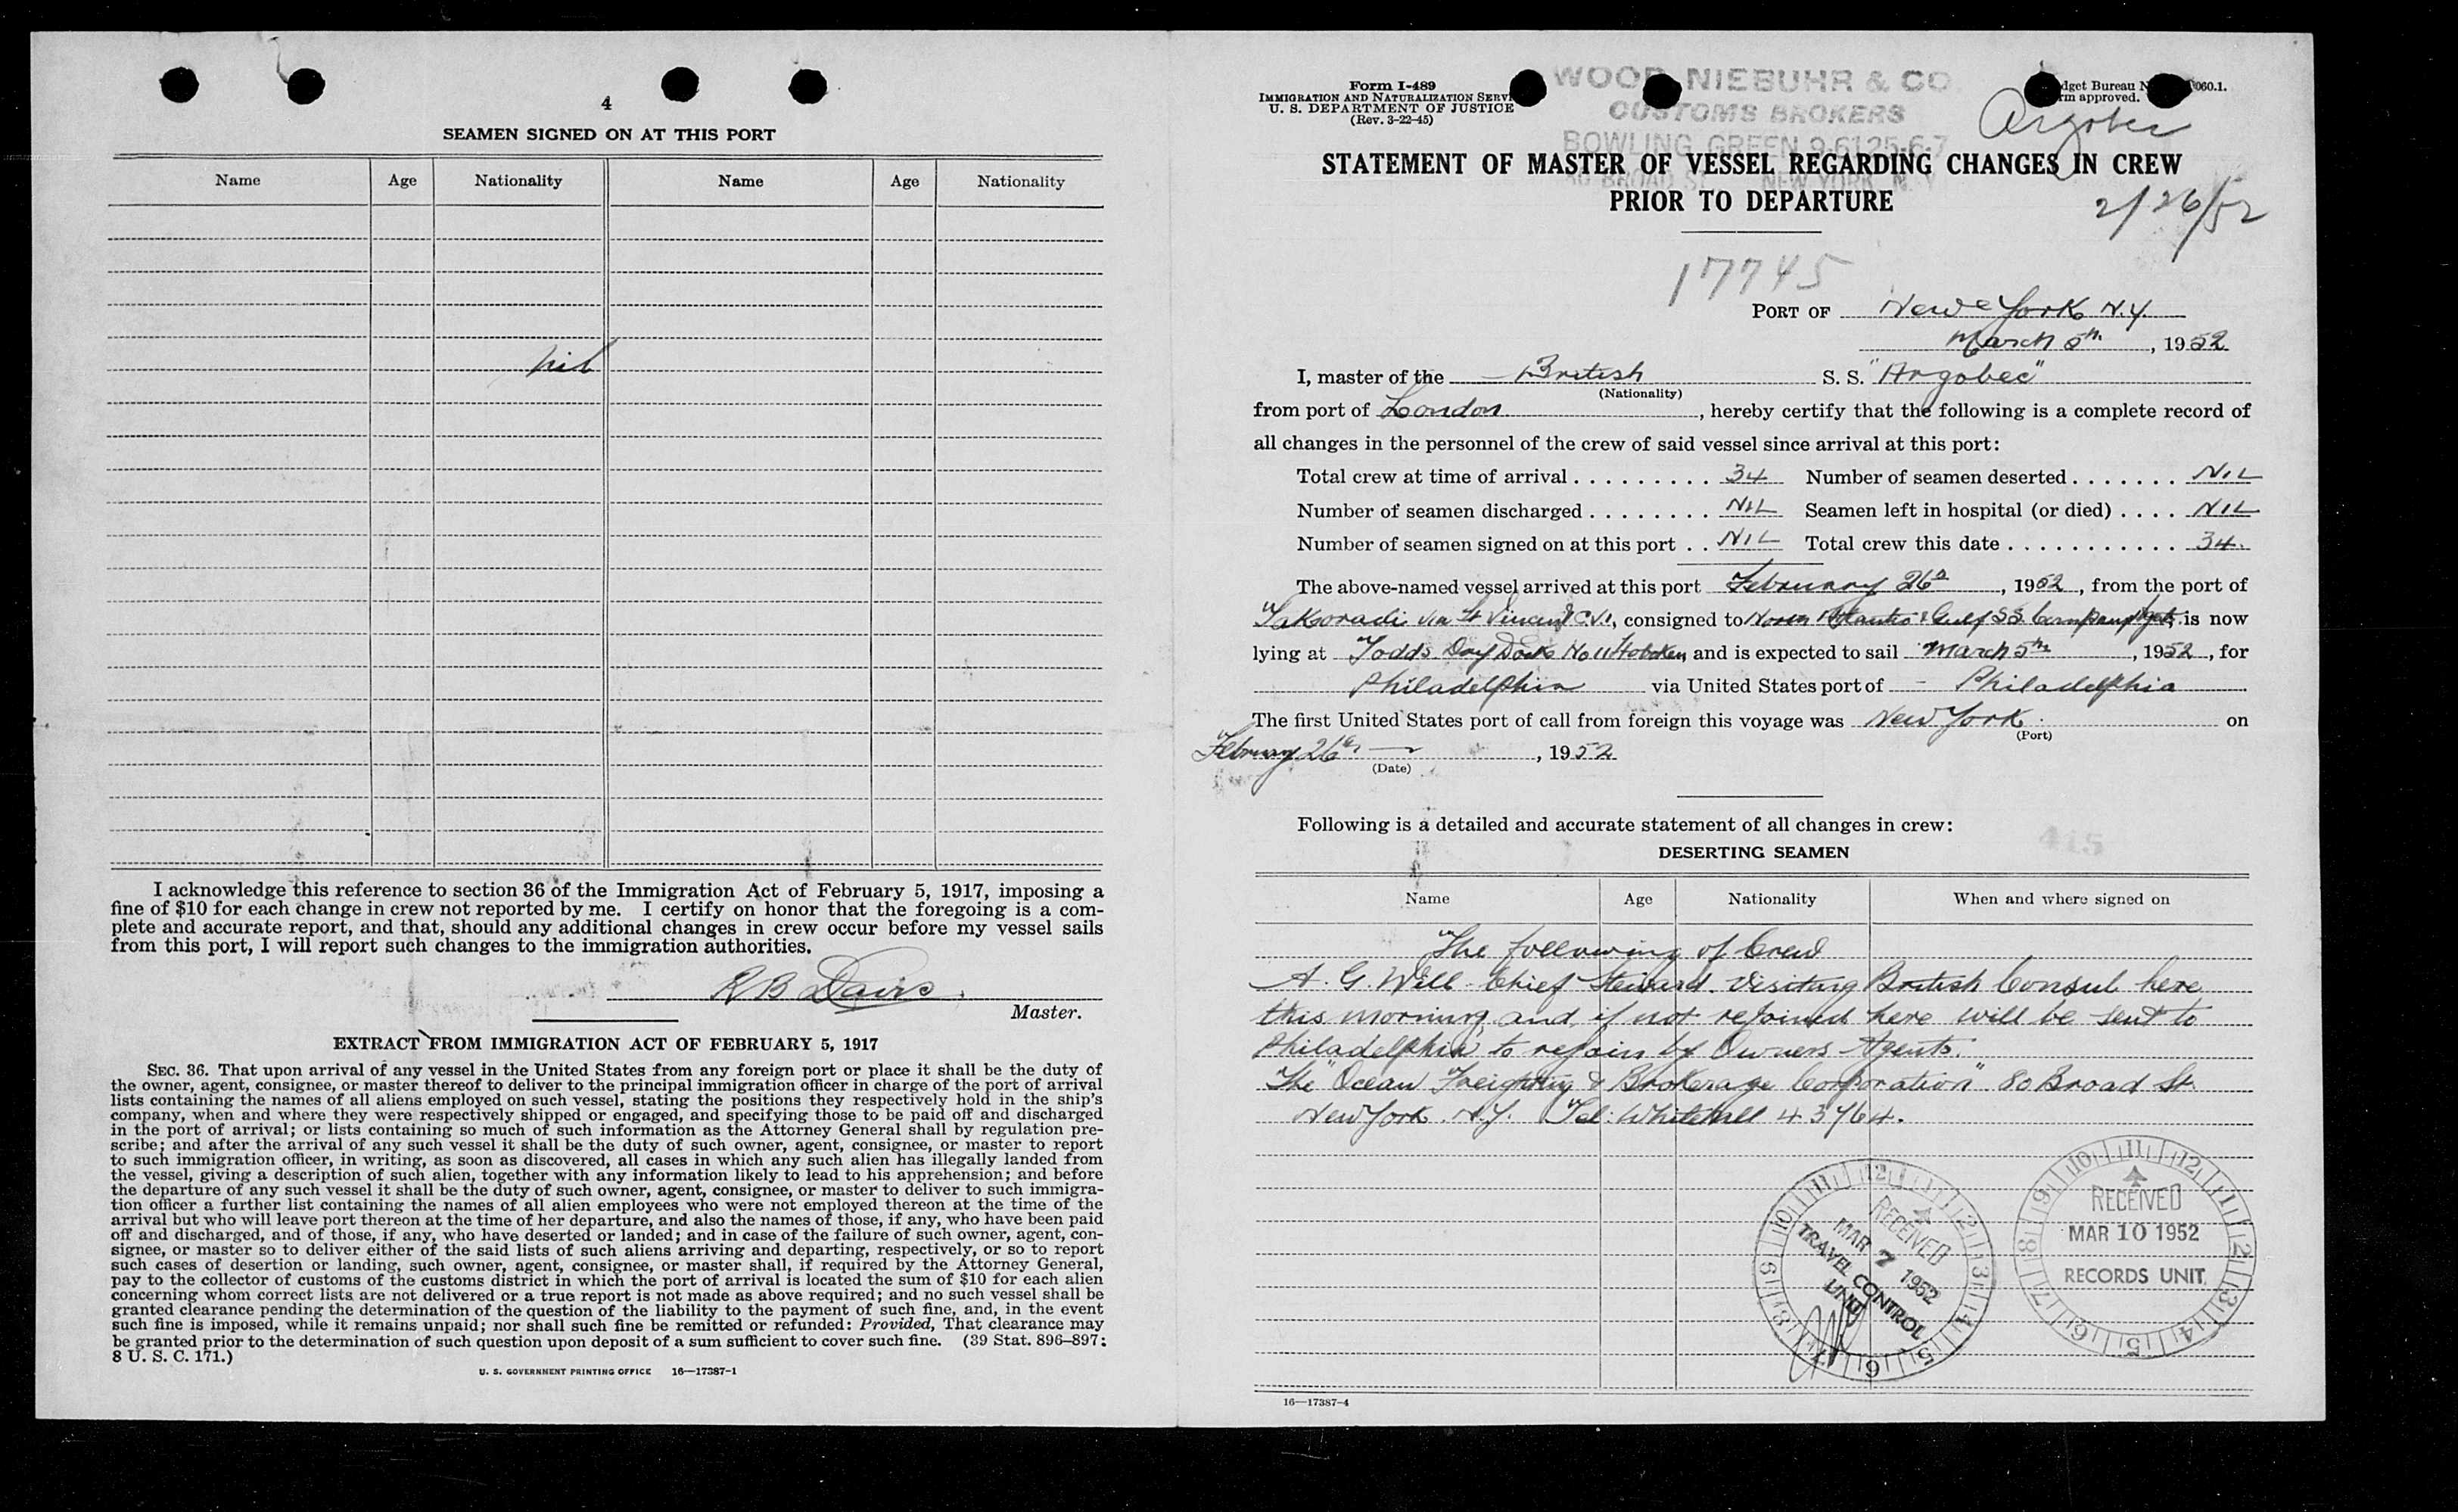 4
SEAMEN SIGNED ON AT THIS PORT
Name Age Nationality Name Age Nationality
nil
I acknowledge this reference to section 36 of the Immigration Act of February 5, 1917, imposing a
fine of $10 for each change in crew not reported by me. I certify on honor that the foregoing is a com-
plete and accurate report, and that, should any additional changes in crew occur before my vessel sails
from this port, I will report such changes to the immigration authorities.
R B Davis
Master.
EXTRACT FROM IMMIGRATION ACT OF FEBRUARY 5, 1917
SEC. 36. That upon arrival of any vessel in the United States from any foreign port or place it shall be the duty of
the owner, agent, consignee, or master thereof to deliver to the principal immigration officer in charge of the port of arrival
lists containing the names of all aliens employed on such vessel, stating the positions they respectively hold in the ship's
company, when and where they were respectively shipped or engaged, and specifying those to be paid off and discharged
in the port of arrival; or lists containing so much of such information as the Attorney General shall by regulation pre-
scribe; and after the arrival of any such vessel it shall be the duty of such owner, agent, consignee, or master to report
to such immigration officer, in writing, as soon as discovered, all cases in which any such alien has illegally landed from
the vessel, giving a description of such alien, together with any information likely to lead to his apprehension; and before
the departure of any such vessel it shall be the duty of such owner, agent, consignee, or master to deliver to such immigra-
tion officer a further list containing the names of all alien employees who were not employed thereon at the time of the
arrival but who will leave port thereon at the time of her departure, and also the names of those, if any, who have been paid
off and discharged, and of those, if any, who have deserted or landed; and in case of the failure of such owner, agent, con-
signee, or master so to deliver either of the said lists of such aliens arriving and departing, respectively, or so to report
such cases of desertion or landing, such owner, agent, consignee, or master shall, if required by the Attorney General,
pay to the collector of customs of the customs district in which the port of arrival is located the sum of $10 for each alien
concerning whom correct lists are not delivered or a true report is not made as above required; and no such vessel shall be
granted clearance pending the determination of the question of the liability to the payment of such fine, and, in the event
such fine is imposed, while it remains unpaid; nor shall such fine be remitted or refunded: Provided, That clearance may
be granted prior to the determination of such question upon deposit of a sum sufficient to cover such fine. (39 Stat. 896–897;
8 U. S. C. 171.)
U. S. GOVERNMENT PRINTING OFFICE 16—17387-1
Form I-489
IMMIGRATION AND NATURALIZATION SERV
U. S. DEPARTMENT OF JUSTICE
(Rev. 3-22-45)
WOOD, NIEBUHR & CO
CUSTOMS BROKERS
BOWLING GREEN 9-6125-6-7
80 BROAD ST. NEW YORK, N. Y.
dget Bureau N 060.1.
rm approved.
Argobec
2/26/52
STATEMENT OF MASTER OF VESSEL REGARDING CHANGES IN CREW
PRIOR TO DEPARTURE
17745
PORT OF New York N.Y.
March 5th, 1952
I, master of the British S. S. "Argobec"
(Nationality)
from port of London, hereby certify that the following is a complete record of
all changes in the personnel of the crew of said vessel since arrival at this port:
Total crew at time of arrival 34 Number of seamen deserted NIL
Number of seamen discharged NIL Seamen left in hospital (or died) NIL
Number of seamen signed on at this port NIL Total crew this date 34
The above-named vessel arrived at this port February 26th, 1952, from the port of
Takoradi via St Vincent C.V.I, consigned to North Atlantic & Gulf SS Company, is now
lying at Todds Dry Dock No 11 Hoboken and is expected to sail March 5th, 1952, for
Philadelphia via United States port of - Philadelphia
The first United States port of call from foreign this voyage was New York on
(Port)
February 26th, 1952
(Date)
Following is a detailed and accurate statement of all changes in crew:
415
DESERTING SEAMEN
Name Age Nationality When and where signed on
The following of Crew
A. G. Will Chief Steward. Visiting British Consul here
this morning, and if not rejoined here will be sent to
Philadelphia to rejoin by Owners Agents.
The "Ocean Freighting & Brokerage Corporation" 80 Broad St.
New York. N.Y. Tel: Whitehall 4 3764.
RECEIVED
MAR 7 1952
TRAVEL CONTROL
UNIT
RECEIVED
MAR 10 1952
RECORDS UNIT
16—17387-4